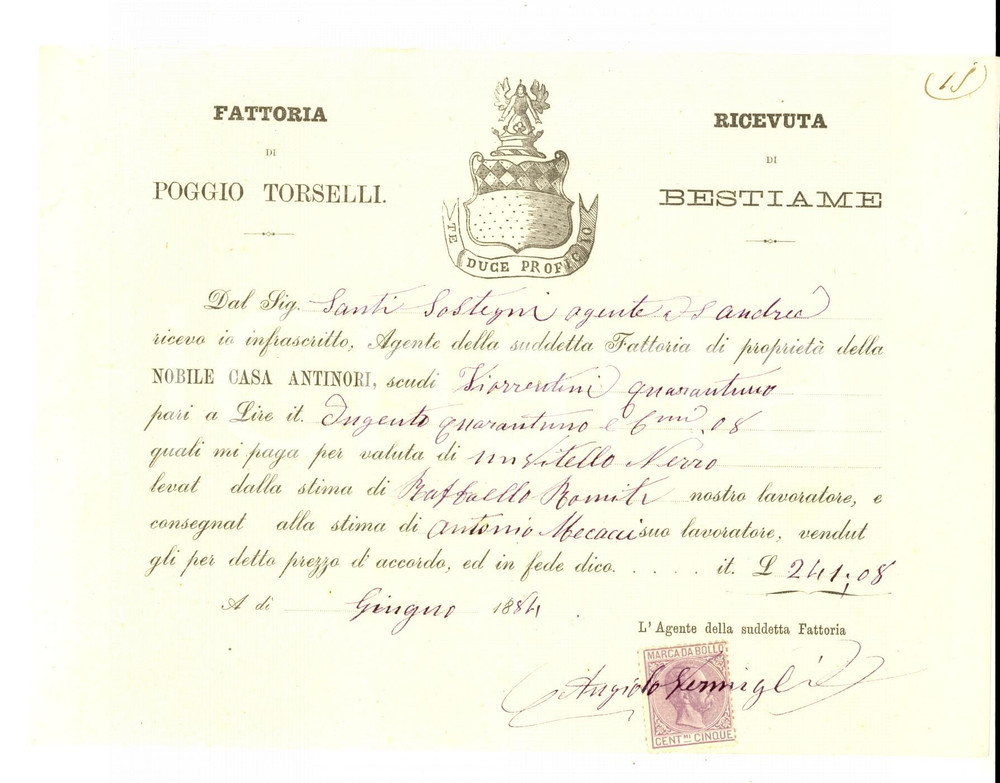 (15)
FATTORIA
DI
POGGIO TORSELLI.
RICEVUTA
DI
BESTIAME
TE DUCE PROFICIO
Dal Sig. Santi Sostegni agente a S Andrea
ricevo io infrascritto, Agente della suddetta Fattoria di proprietà della
NOBILE CASA ANTINORI, scudi Fiorentini quarantuno
pari a Lire it. Dugento quarantuno e Cmi .08
quali mi paga per valuta di un Vitello Nerro
levat dalla stima di Raffaello Romiti nostro lavoratore, e
consegnat alla stima di Antonio Mecacci suo lavoratore, vendut
gli per detto prezzo d'accordo, ed in fede dico. . . . . it. £ 241:08
A dì Giugno 1884 .
L'Agente della suddetta Fattoria
Angiolo Vermigli
MARCA DA BOLLO
CENT.MI CINQUE